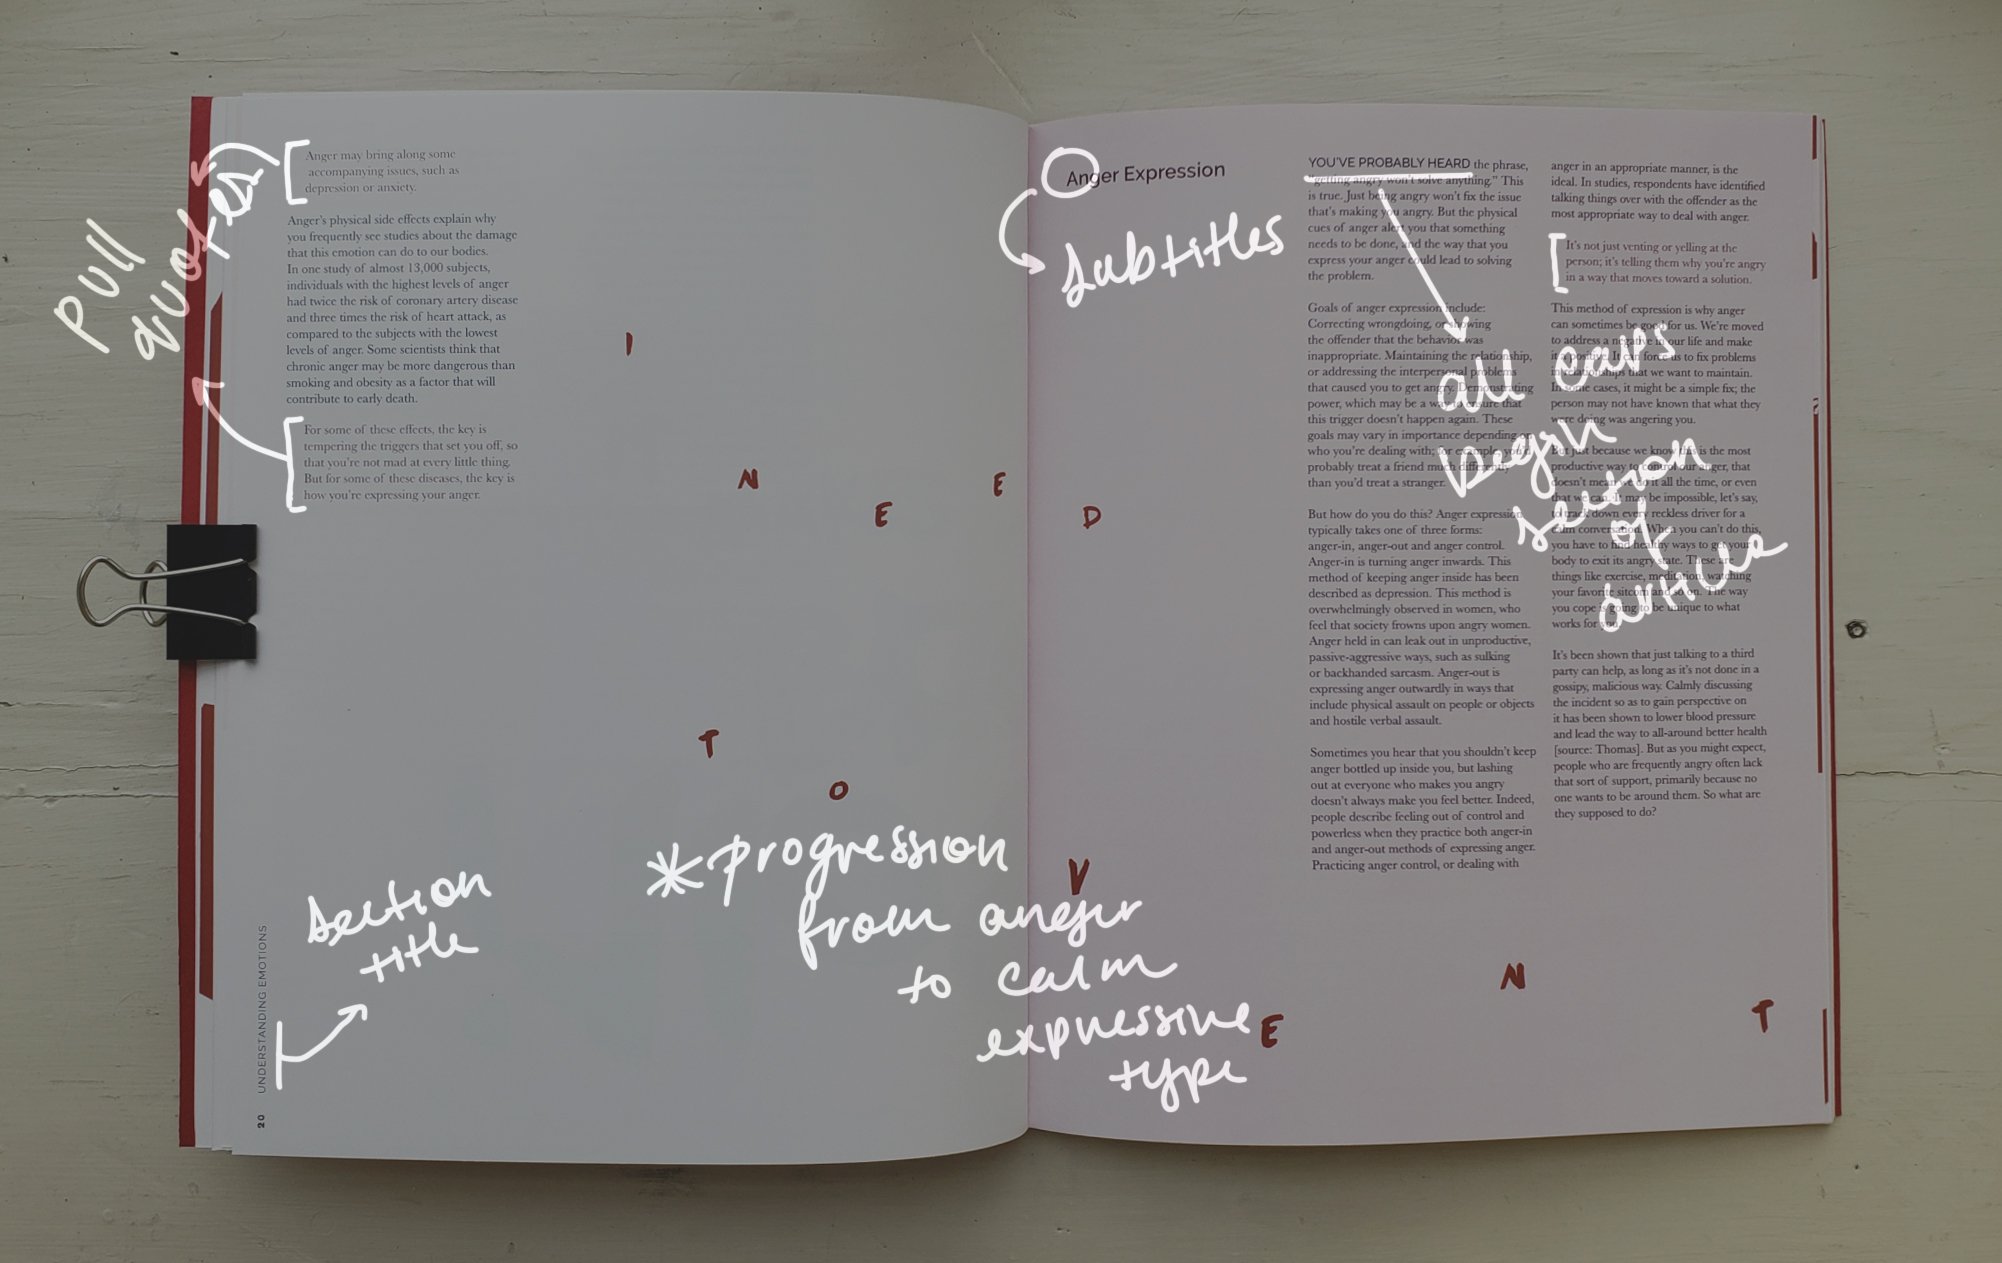 Anger may bring along some
accompanying issues, such as
depression or anxiety.
Anger's physical side effects explain why
you frequently see studies about the damage
that this emotion can do to our bodies.
In one study of almost 13,000 subjects,
individuals with the highest levels of anger
had twice the risk of coronary artery disease
and three times the risk of heart attack, as
compared to the subjects with the lowest
levels of anger. Some scientists think that
chronic anger may be more dangerous than
smoking and obesity as a factor that will
contribute to early death.
For some of these effects, the key is
tempering the triggers that set you off, so
that you're not mad at every little thing.
But for some of these diseases, the key is
how you're expressing your anger.
pull
quotes
I
N E E D
T O
V E N T
section
title
UNDERSTANDING EMOTIONS
20
*progression
from anger
to calm
expressive
type
Anger Expression
subtitles
YOU'VE PROBABLY HEARD the phrase,
"getting angry won't solve anything." This
is true. Just being angry won't fix the issue
that's making you angry. But the physical
cues of anger alert you that something
needs to be done, and the way that you
express your anger could lead to solving
the problem.
Goals of anger expression include:
Correcting wrongdoing, or showing
the offender that the behavior was
inappropriate. Maintaining the relationship,
or addressing the interpersonal problems
that caused you to get angry. Demonstrating
power, which may be a way to ensure that
this trigger doesn't happen again. These
goals may vary in importance depending on
who you're dealing with; for example, you'd
probably treat a friend much differently
than you'd treat a stranger.
But how do you do this? Anger expression
typically takes one of three forms:
anger-in, anger-out and anger control.
Anger-in is turning anger inwards. This
method of keeping anger inside has been
described as depression. This method is
overwhelmingly observed in women, who
feel that society frowns upon angry women.
Anger held in can leak out in unproductive,
passive-aggressive ways, such as sulking
or backhanded sarcasm. Anger-out is
expressing anger outwardly in ways that
include physical assault on people or objects
and hostile verbal assault.
Sometimes you hear that you shouldn't keep
anger bottled up inside you, but lashing
out at everyone who makes you angry
doesn't always make you feel better. Indeed,
people describe feeling out of control and
powerless when they practice both anger-in
and anger-out methods of expressing anger.
Practicing anger control, or dealing with
anger in an appropriate manner, is the
ideal. In studies, respondents have identified
talking things over with the offender as the
most appropriate way to deal with anger.
It's not just venting or yelling at the
person; it's telling them why you're angry
in a way that moves toward a solution.
This method of expression is why anger
can sometimes be good for us. We're moved
to address a negative in our life and make
it a positive. It can force us to fix problems
in relationships that we want to maintain.
In some cases, it might be a simple fix; the
person may not have known that what they
were doing was angering you.
But just because we know this is the most
productive way to control our anger, that
doesn't mean we do it all the time, or even
that we can. It may be impossible, let's say,
to track down every reckless driver for a
calm conversation. When you can't do this,
you have to find healthy ways to get your
body to exit its angry state. These are
things like exercise, meditation, watching
your favorite sitcom and so on. The way
you cope is going to be unique to what
works for you.
It's been shown that just talking to a third
party can help, as long as it's not done in a
gossipy, malicious way. Calmly discussing
the incident so as to gain perspective on
it has been shown to lower blood pressure
and lead the way to all-around better health
[source: Thomas]. But as you might expect,
people who are frequently angry often lack
that sort of support, primarily because no
one wants to be around them. So what are
they supposed to do?
all caps
begin
section
of
article